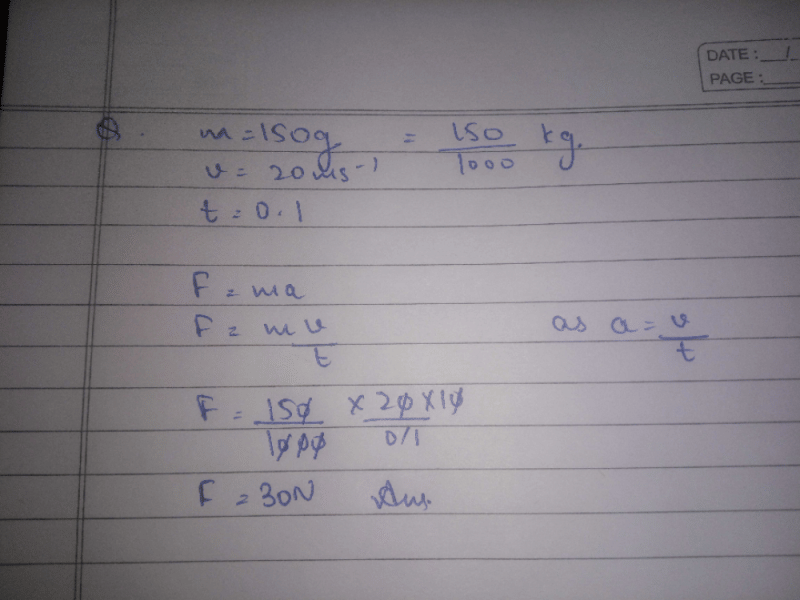 DATE: __/_
PAGE: ____
Q. m = 150g = 150/1000 kg.
v = 20 ms⁻¹
t = 0.1
F = ma
F = m v/t as a = v/t
F = 150/1000 × 20 × 10/0/1
F = 30N Ans.